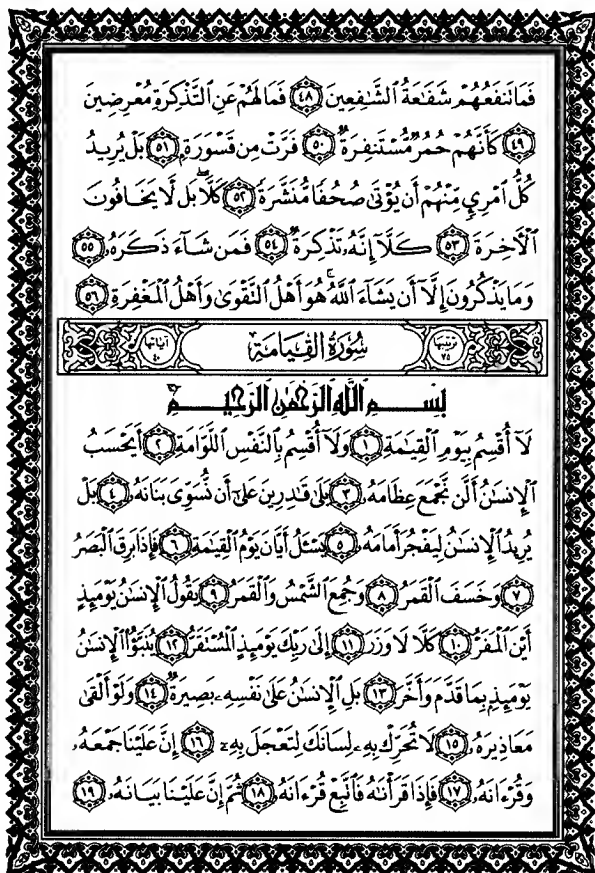 فَمَا تَنفَعُهُمْ شَفَٰعَةُ ٱلشَّٰفِعِينَ ٤٨ فَمَا لَهُمْ عَنِ ٱلتَّذْكِرَةِ مُعْرِضِينَ
٤٩ كَأَنَّهُمْ حُمُرٌ مُّسْتَنفِرَةٌ ٥٠ فَرَّتْ مِن قَسْوَرَةٍۭ ٥١ بَلْ يُرِيدُ
كُلُّ ٱمْرِئٍ مِّنْهُمْ أَن يُؤْتَىٰ صُحُفًا مُّنَشَّرَةً ٥٢ كَلَّا ۖ بَل لَّا يَخَافُونَ
ٱلْءَاخِرَةَ ٥٣ كَلَّآ إِنَّهُۥ تَذْكِرَةٌ ٥٤ فَمَن شَآءَ ذَكَرَهُۥ ٥٥
وَمَا يَذْكُرُونَ إِلَّآ أَن يَشَآءَ ٱللَّهُ ۚ هُوَ أَهْلُ ٱلتَّقْوَىٰ وَأَهْلُ ٱلْمَغْفِرَةِ ٥٦
ترتيبها ٧٥ سُورَةُ القِيَامَةِ آياتها ٤٠
بِسْمِ ٱللَّهِ ٱلرَّحْمَٰنِ ٱلرَّحِيمِ
لَآ أُقْسِمُ بِيَوْمِ ٱلْقِيَٰمَةِ ١ وَلَآ أُقْسِمُ بِٱلنَّفْسِ ٱللَّوَّامَةِ ٢ أَيَحْسَبُ
ٱلْإِنسَٰنُ أَلَّن نَّجْمَعَ عِظَامَهُۥ ٣ بَلَىٰ قَٰدِرِينَ عَلَىٰٓ أَن نُّسَوِّىَ بَنَانَهُۥ ٤ بَلْ
يُرِيدُ ٱلْإِنسَٰنُ لِيَفْجُرَ أَمَامَهُۥ ٥ يَسْـَٔلُ أَيَّانَ يَوْمُ ٱلْقِيَٰمَةِ ٦ فَإِذَا بَرِقَ ٱلْبَصَرُ
٧ وَخَسَفَ ٱلْقَمَرُ ٨ وَجُمِعَ ٱلشَّمْسُ وَٱلْقَمَرُ ٩ يَقُولُ ٱلْإِنسَٰنُ يَوْمَئِذٍ
أَيْنَ ٱلْمَفَرُّ ١٠ كَلَّا لَا وَزَرَ ١١ إِلَىٰ رَبِّكَ يَوْمَئِذٍ ٱلْمُسْتَقَرُّ ١٢ يُنَبَّؤُا۟ ٱلْإِنسَٰنُ
يَوْمَئِذٍۭ بِمَا قَدَّمَ وَأَخَّرَ ١٣ بَلِ ٱلْإِنسَٰنُ عَلَىٰ نَفْسِهِۦ بَصِيرَةٌ ١٤ وَلَوْ أَلْقَىٰ
مَعَاذِيرَهُۥ ١٥ لَا تُحَرِّكْ بِهِۦ لِسَانَكَ لِتَعْجَلَ بِهِۦٓ ١٦ إِنَّ عَلَيْنَا جَمْعَهُۥ
وَقُرْءَانَهُۥ ١٧ فَإِذَا قَرَأْنَٰهُ فَٱتَّبِعْ قُرْءَانَهُۥ ١٨ ثُمَّ إِنَّ عَلَيْنَا بَيَانَهُۥ ١٩